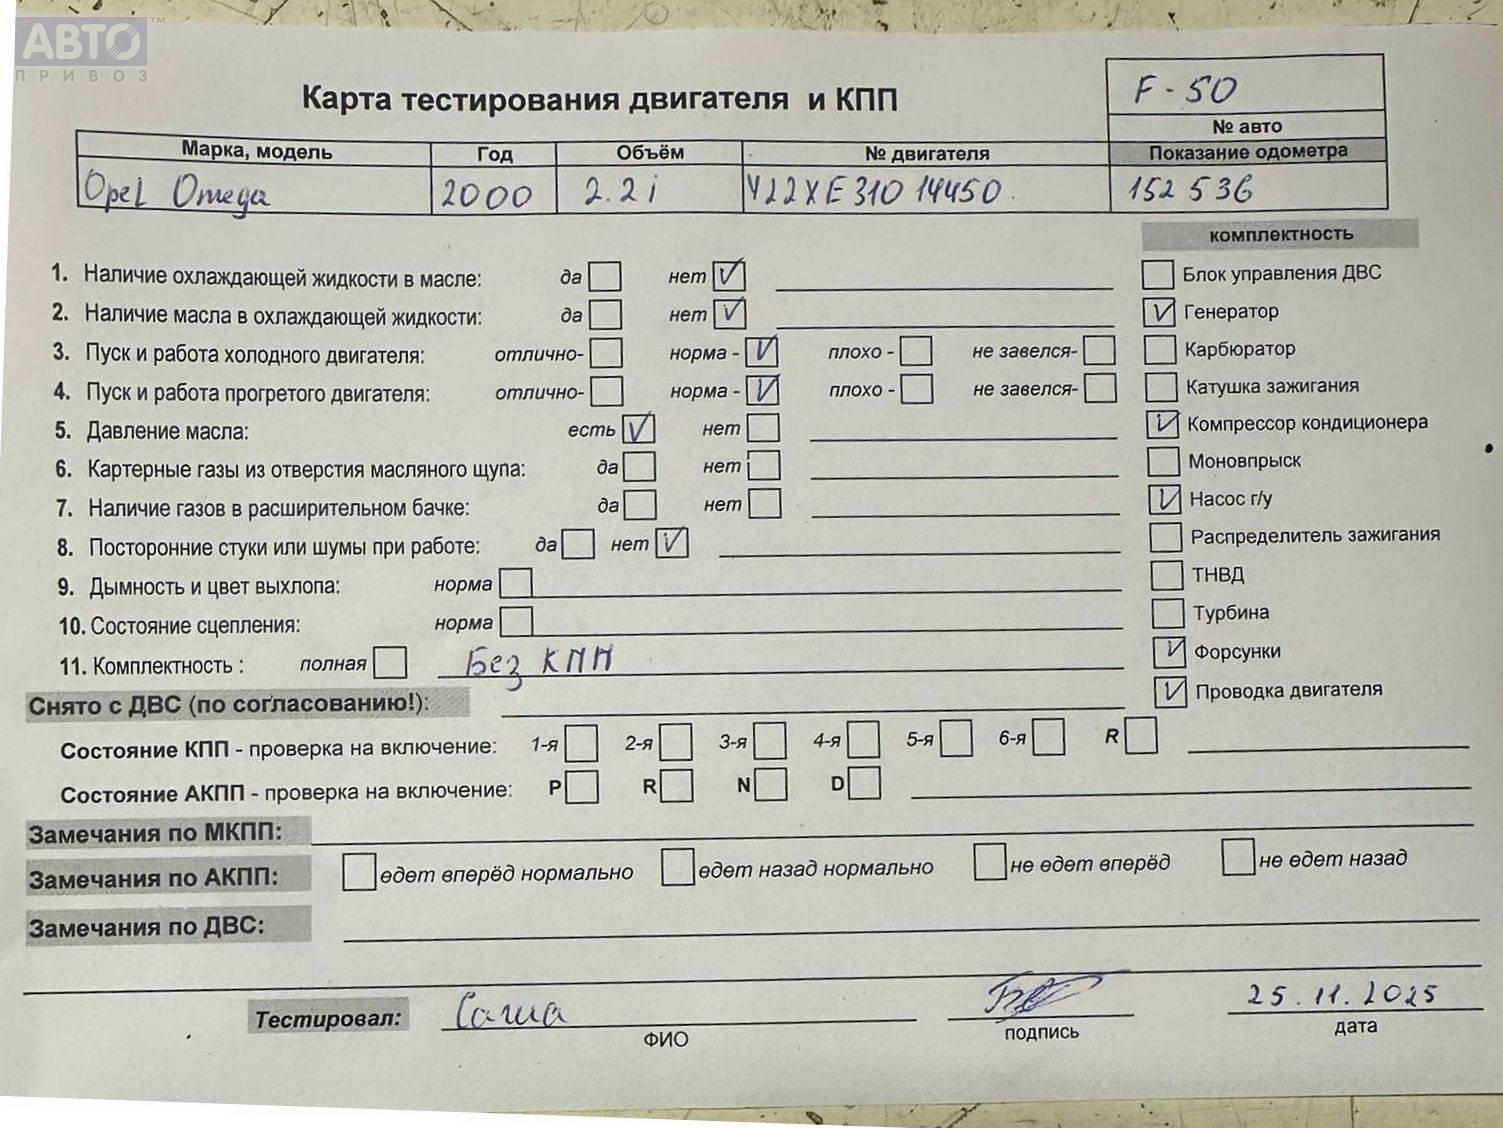 АВТО™
ПРИВОЗ
Карта тестирования двигателя и КПП
F-50
№ авто
Марка, модель Год Объём № двигателя Показание одометра
Opel Omega 2000 2.2i Y22XE31014450 152536
комплектность
1. Наличие охлаждающей жидкости в масле: да нет V
Блок управления ДВС
2. Наличие масла в охлаждающей жидкости: да нет V
V Генератор
3. Пуск и работа холодного двигателя: отлично- норма - V плохо - не завелся-
Карбюратор
4. Пуск и работа прогретого двигателя: отлично- норма - V плохо - не завелся-
Катушка зажигания
5. Давление масла: есть V нет
V Компрессор кондиционера
6. Картерные газы из отверстия масляного щупа: да нет
Моновпрыск
7. Наличие газов в расширительном бачке: да нет
V Насос г/у
8. Посторонние стуки или шумы при работе: да нет V
Распределитель зажигания
9. Дымность и цвет выхлопа: норма
ТНВД
10. Состояние сцепления: норма
Турбина
11. Комплектность : полная Без КПП
V Форсунки
Снято с ДВС (по согласованию!):
V Проводка двигателя
Состояние КПП - проверка на включение: 1-я 2-я 3-я 4-я 5-я 6-я R
Состояние АКПП - проверка на включение: P R N D
Замечания по МКПП:
Замечания по АКПП: едет вперёд нормально едет назад нормально не едет вперёд не едет назад
Замечания по ДВС:
Тестировал: Саша 25.11.2025
ФИО подпись дата